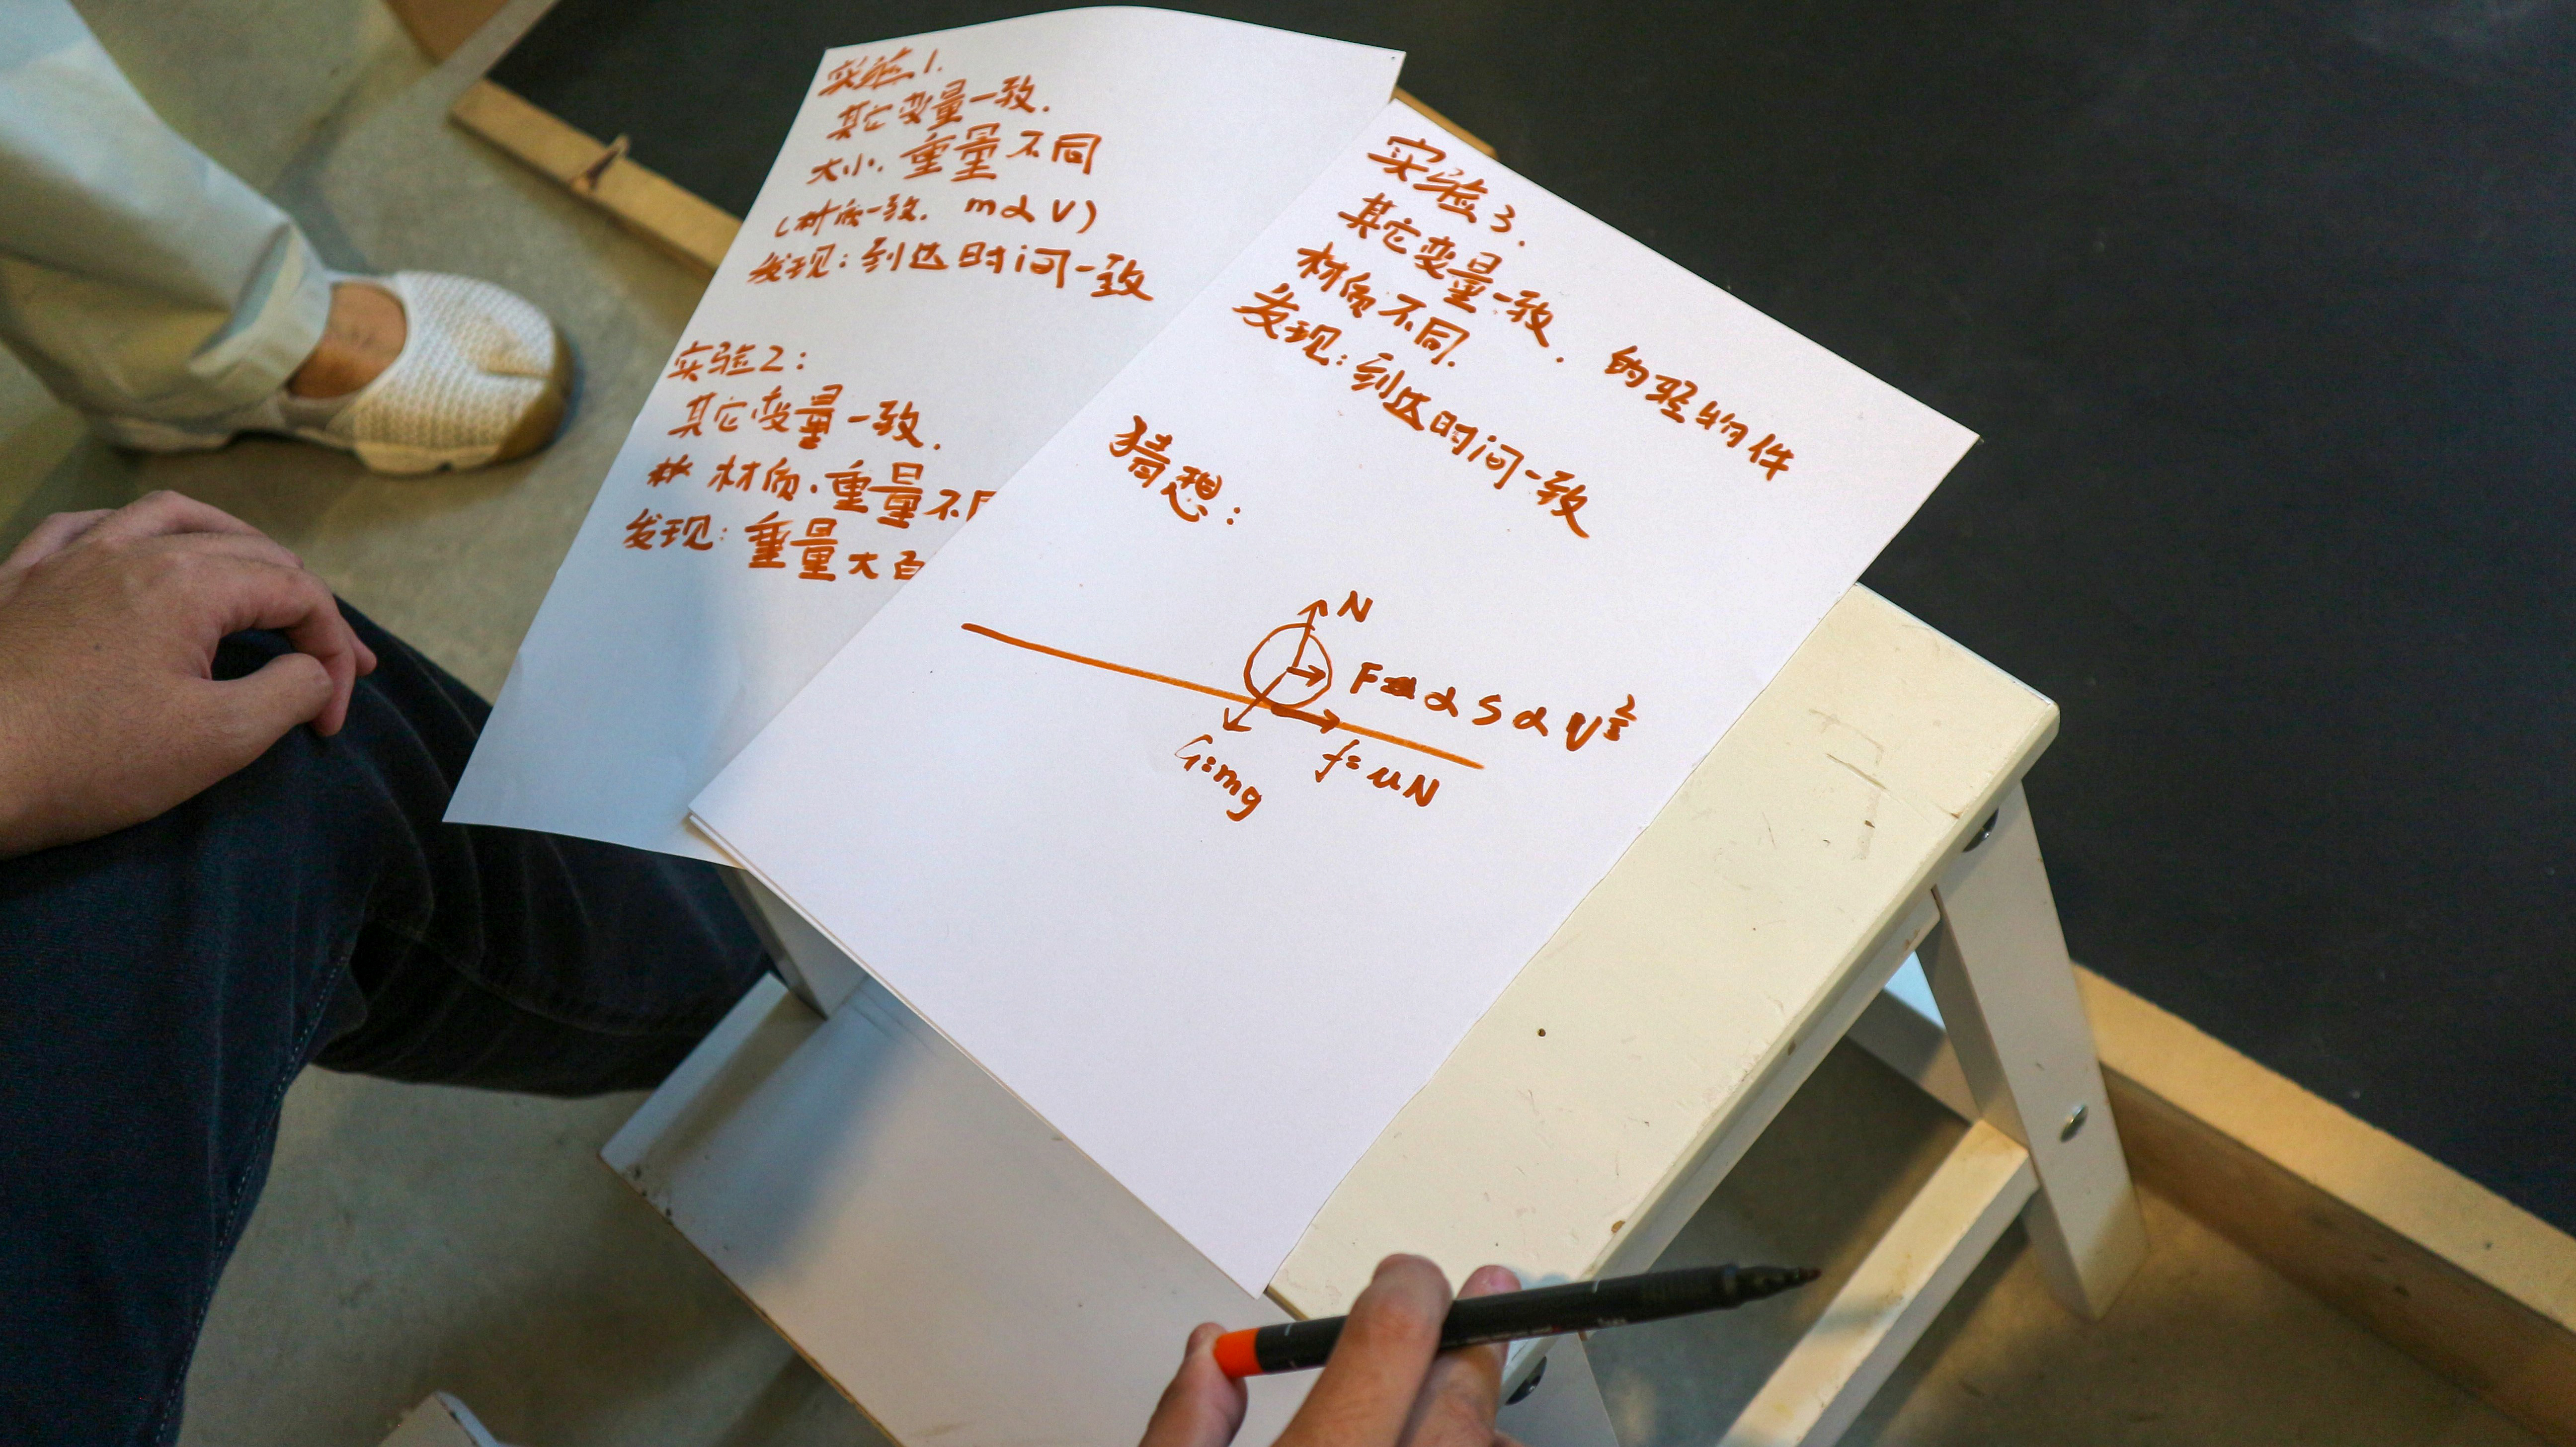 实验1.
其它变量一致.
大小.重量不同
(材质一致. m∝V)
发现:到达时间一致
实验2:
其它变量一致.
材质.重量不
发现:重量大
实验3.
其它变量一致.
材质不同. 的轻物件
发现:到达时间一致
猜想:
N
F∝S∝V
G=mg
f=μN